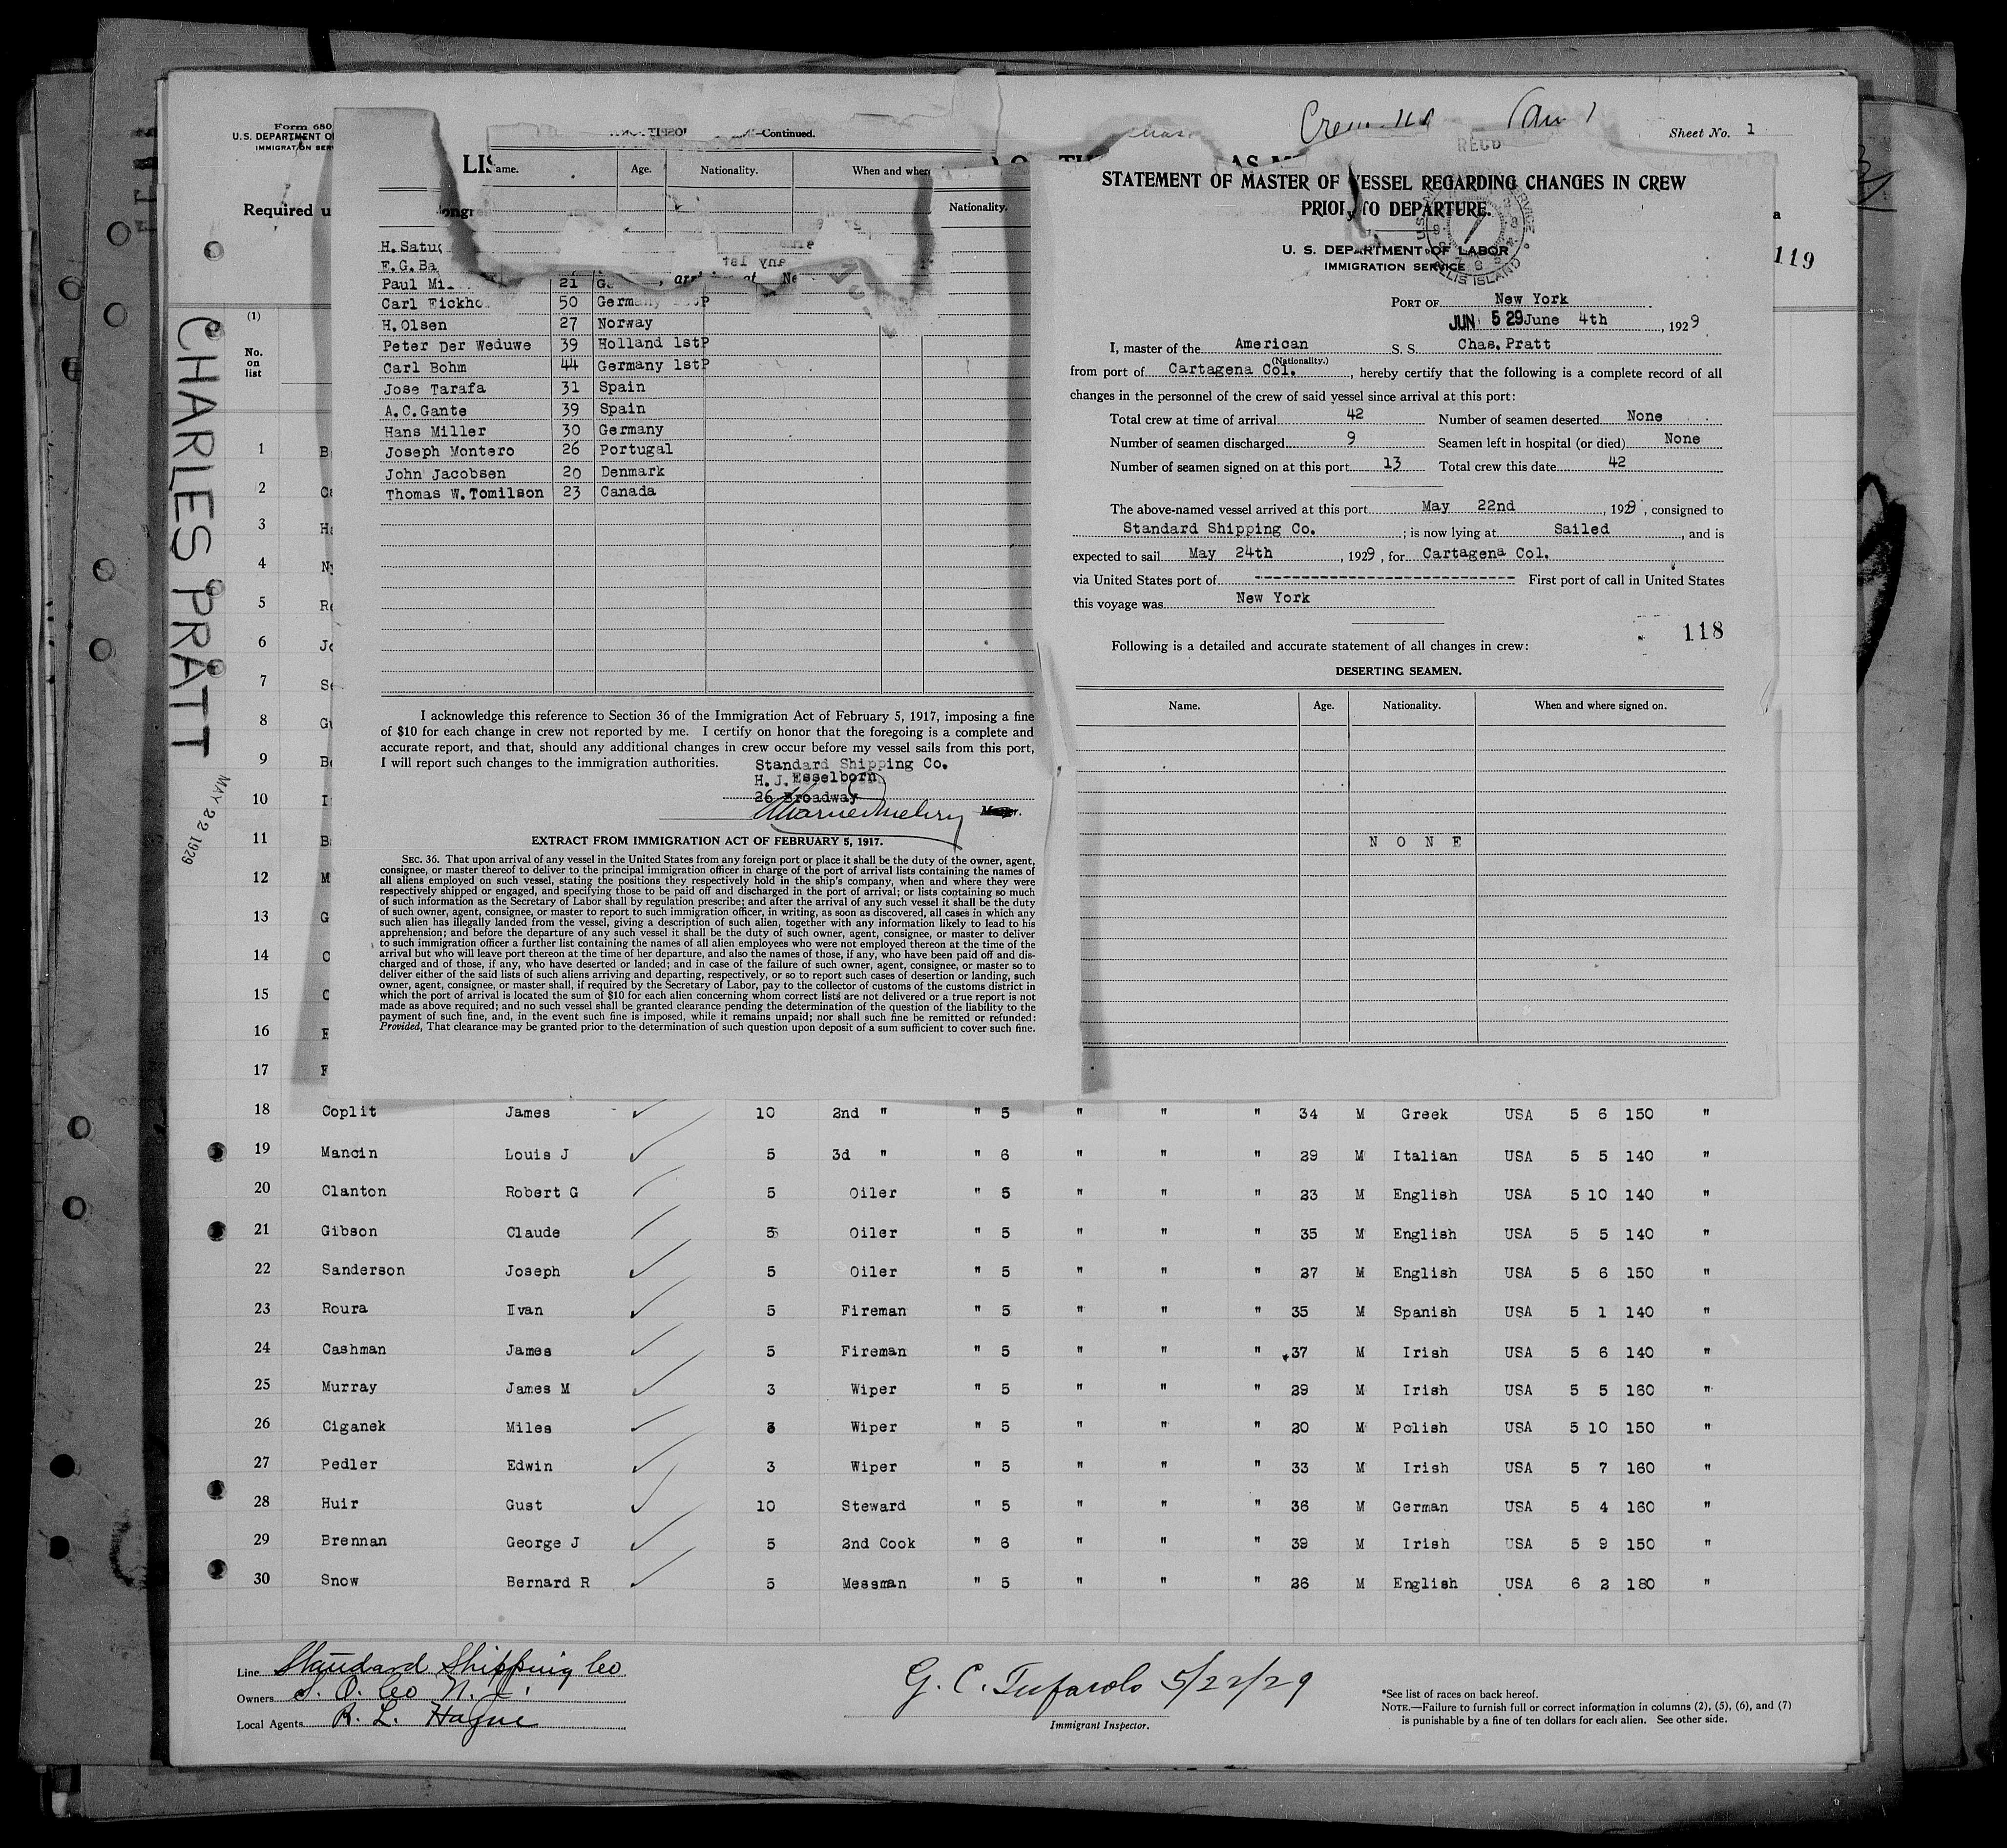 Form 680
U.S. DEPARTMENT O
IMMIGRATION SER
Required u
Sheet No. 1
RECD
119
CHARLES PRATT
MAY 22 1929
(1)
No.
on
list
—Continued.
Age. Nationality. When and where
Nationality.
H. Satu
E.G. Ba
Paul Mi 21
Carl Eickho 50 Germany 1stP
H. Olsen 27 Norway
Peter Der Weduwe 39 Holland 1stP
Carl Bohm 44 Germany 1stP
Jose Tarafa 31 Spain
A.C.Gante 39 Spain
Hans Miller 30 Germany
Joseph Montero 26 Portugal
John Jacobsen 20 Denmark
Thomas W. Tomilson 23 Canada
I acknowledge this reference to Section 36 of the Immigration Act of February 5, 1917, imposing a fine
of $10 for each change in crew not reported by me. I certify on honor that the foregoing is a complete and
accurate report, and that, should any additional changes in crew occur before my vessel sails from this port,
I will report such changes to the immigration authorities.
Standard Shipping Co.
H. J. Esselborn
26 Broadway
EXTRACT FROM IMMIGRATION ACT OF FEBRUARY 5, 1917.
SEC. 36. That upon arrival of any vessel in the United States from any foreign port or place it shall be the duty of the owner, agent,
consignee, or master thereof to deliver to the principal immigration officer in charge of the port of arrival lists containing the names of
all aliens employed on such vessel, stating the positions they respectively hold in the ship's company, when and where they were
respectively shipped or engaged, and specifying those to be paid off and discharged in the port of arrival; or lists containing so much
of such information as the Secretary of Labor shall by regulation prescribe; and after the arrival of any such vessel it shall be the duty
of such owner, agent, consignee, or master to report to such immigration officer, in writing, as soon as discovered, all cases in which any
such alien has illegally landed from the vessel, giving a description of such alien, together with any information likely to lead to his
apprehension; and before the departure of any such vessel it shall be the duty of such owner, agent, consignee, or master to deliver
to such immigration officer a further list containing the names of all alien employees who were not employed thereon at the time of the
arrival but who will leave port thereon at the time of her departure, and also the names of those, if any, who have been paid off and dis-
charged and of those, if any, who have deserted or landed; and in case of the failure of such owner, agent, consignee, or master so to
deliver either of the said lists of such aliens arriving and departing, respectively, or so to report such cases of desertion or landing, such
owner, agent, consignee, or master shall, if required by the Secretary of Labor, pay to the collector of customs of the customs district in
which the port of arrival is located the sum of $10 for each alien concerning whom correct lists are not delivered or a true report is not
made as above required; and no such vessel shall be granted clearance pending the determination of the question of the liability to the
payment of such fine, and, in the event such fine is imposed, while it remains unpaid; nor shall such fine be remitted or refunded:
Provided, That clearance may be granted prior to the determination of such question upon deposit of a sum sufficient to cover such fine.
STATEMENT OF MASTER OF VESSEL REGARDING CHANGES IN CREW
PRIOR TO DEPARTURE.
U. S. DEPARTMENT OF LABOR
IMMIGRATION SERVICE
ELLIS ISLAND
PORT OF New York
JUN 5 29 June 4th, 1929
I, master of the American S. S. Chas. Pratt
(Nationality.)
from port of Cartagena Col., hereby certify that the following is a complete record of all
changes in the personnel of the crew of said vessel since arrival at this port:
Total crew at time of arrival 42 Number of seamen deserted None
Number of seamen discharged 9 Seamen left in hospital (or died) None
Number of seamen signed on at this port 13 Total crew this date 42
The above-named vessel arrived at this port May 22nd, 1929, consigned to
Standard Shipping Co.; is now lying at Sailed, and is
expected to sail May 24th, 1929, for Cartagena Col.
via United States port of -------------------------- First port of call in United States
this voyage was New York
118
Following is a detailed and accurate statement of all changes in crew:
DESERTING SEAMEN.
Name. Age. Nationality. When and where signed on.
N O N E
1 B
2 Ca
3 Ha
4 Ny
5 Ro
6 Jo
7 Se
8 Gu
9 Bo
10 I
11 B
12 M
13 G
14 C
15 C
16 E
17 F
18 Coplit James 10 2nd " " 5 " " " 34 M Greek USA 5 6 150 "
19 Mancin Louis J 5 3d " " 6 " " " 29 M Italian USA 5 5 140 "
20 Clanton Robert G 5 Oiler " 5 " " " 23 M English USA 5 10 140 "
21 Gibson Claude 5 Oiler " 5 " " " 35 M English USA 5 5 140 "
22 Sanderson Joseph 5 Oiler " 5 " " " 27 M English USA 5 6 150 "
23 Roura Ivan 5 Fireman " 5 " " " 35 M Spanish USA 5 1 140 "
24 Cashman James 5 Fireman " 5 " " " 37 M Irish USA 5 6 140 "
25 Murray James M 3 Wiper " 5 " " " 29 M Irish USA 5 5 160 "
26 Ciganek Miles 3 Wiper " 5 " " " 20 M Polish USA 5 10 150 "
27 Pedler Edwin 3 Wiper " 5 " " " 33 M Irish USA 5 7 160 "
28 Huir Gust 10 Steward " 5 " " " 36 M German USA 5 4 160 "
29 Brennan George J 5 2nd Cook " 6 " " " 39 M Irish USA 5 9 150 "
30 Snow Bernard R 5 Messman " 5 " " " 26 M English USA 6 2 180 "
Line Standard Shipping Co
Owners S. O. Co N. J.
Local Agents R. L. Hague
G. C. Tufarolo 5/22/29
Immigrant Inspector.
*See list of races on back hereof.
NOTE.—Failure to furnish full or correct information in columns (2), (5), (6), and (7)
is punishable by a fine of ten dollars for each alien. See other side.